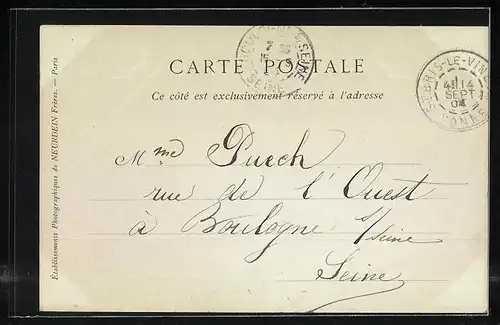 CARTE POSTALE
Ce côté est exclusivement réservé à l'adresse
Mme Puech
rue de l'Ouest
à Boulogne s/seine
Seine
Établissements Photographiques de NEURDEIN Frères. — Paris
BRIS-LE-VIN
SEPT
04
YONNE
SEINE